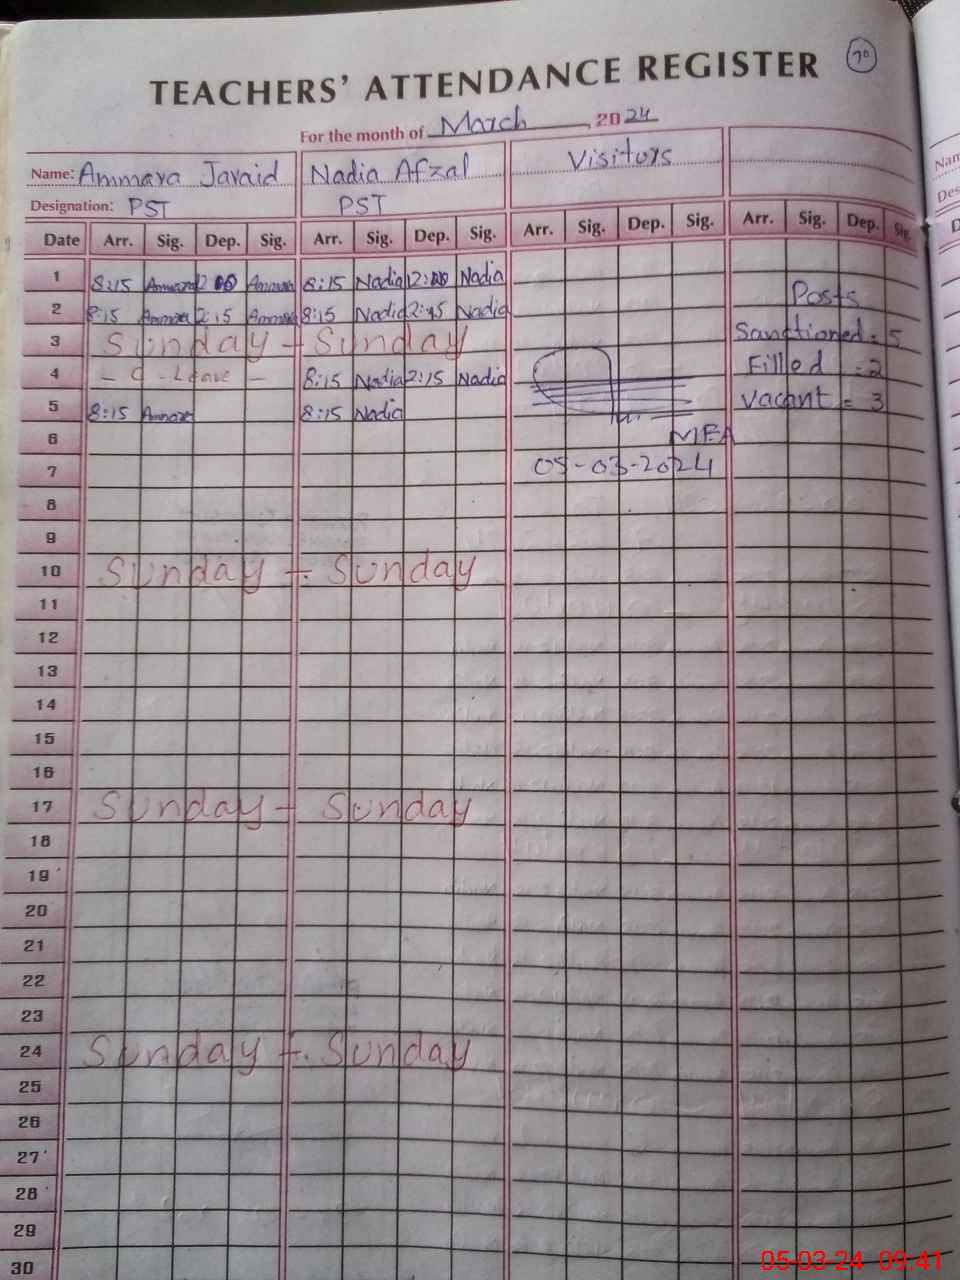 70
TEACHERS' ATTENDANCE REGISTER
For the month of March, 2024
Name: Ammara Javaid Nadia Afzal Visitors
Designation: PST PST
Date Arr. Sig. Dep. Sig. Arr. Sig. Dep. Sig. Arr. Sig. Dep. Sig. Arr. Sig. Dep. Sig.
1 8:15 Ammara 12:00 Ammara 8:15 Nadia 12:00 Nadia
Posts
2 8:15 Ammara 2:15 Ammara 8:15 Nadia 2:15 Nadia
3 Sunday - Sunday
Sanctioned = 5
4 - C - Leave - 8:15 Nadia 2:15 Nadia
Filled = 2
5 8:15 Ammara 8:15 Nadia
Vacant = 3
6 MEA
7 05-03-2024
8
9
10 Sunday - Sunday
11
12
13
14
15
16
17 Sunday - Sunday
18
19
20
21
22
23
24 Sunday - Sunday
25
26
27
28
29
30
05-03-24 09:41